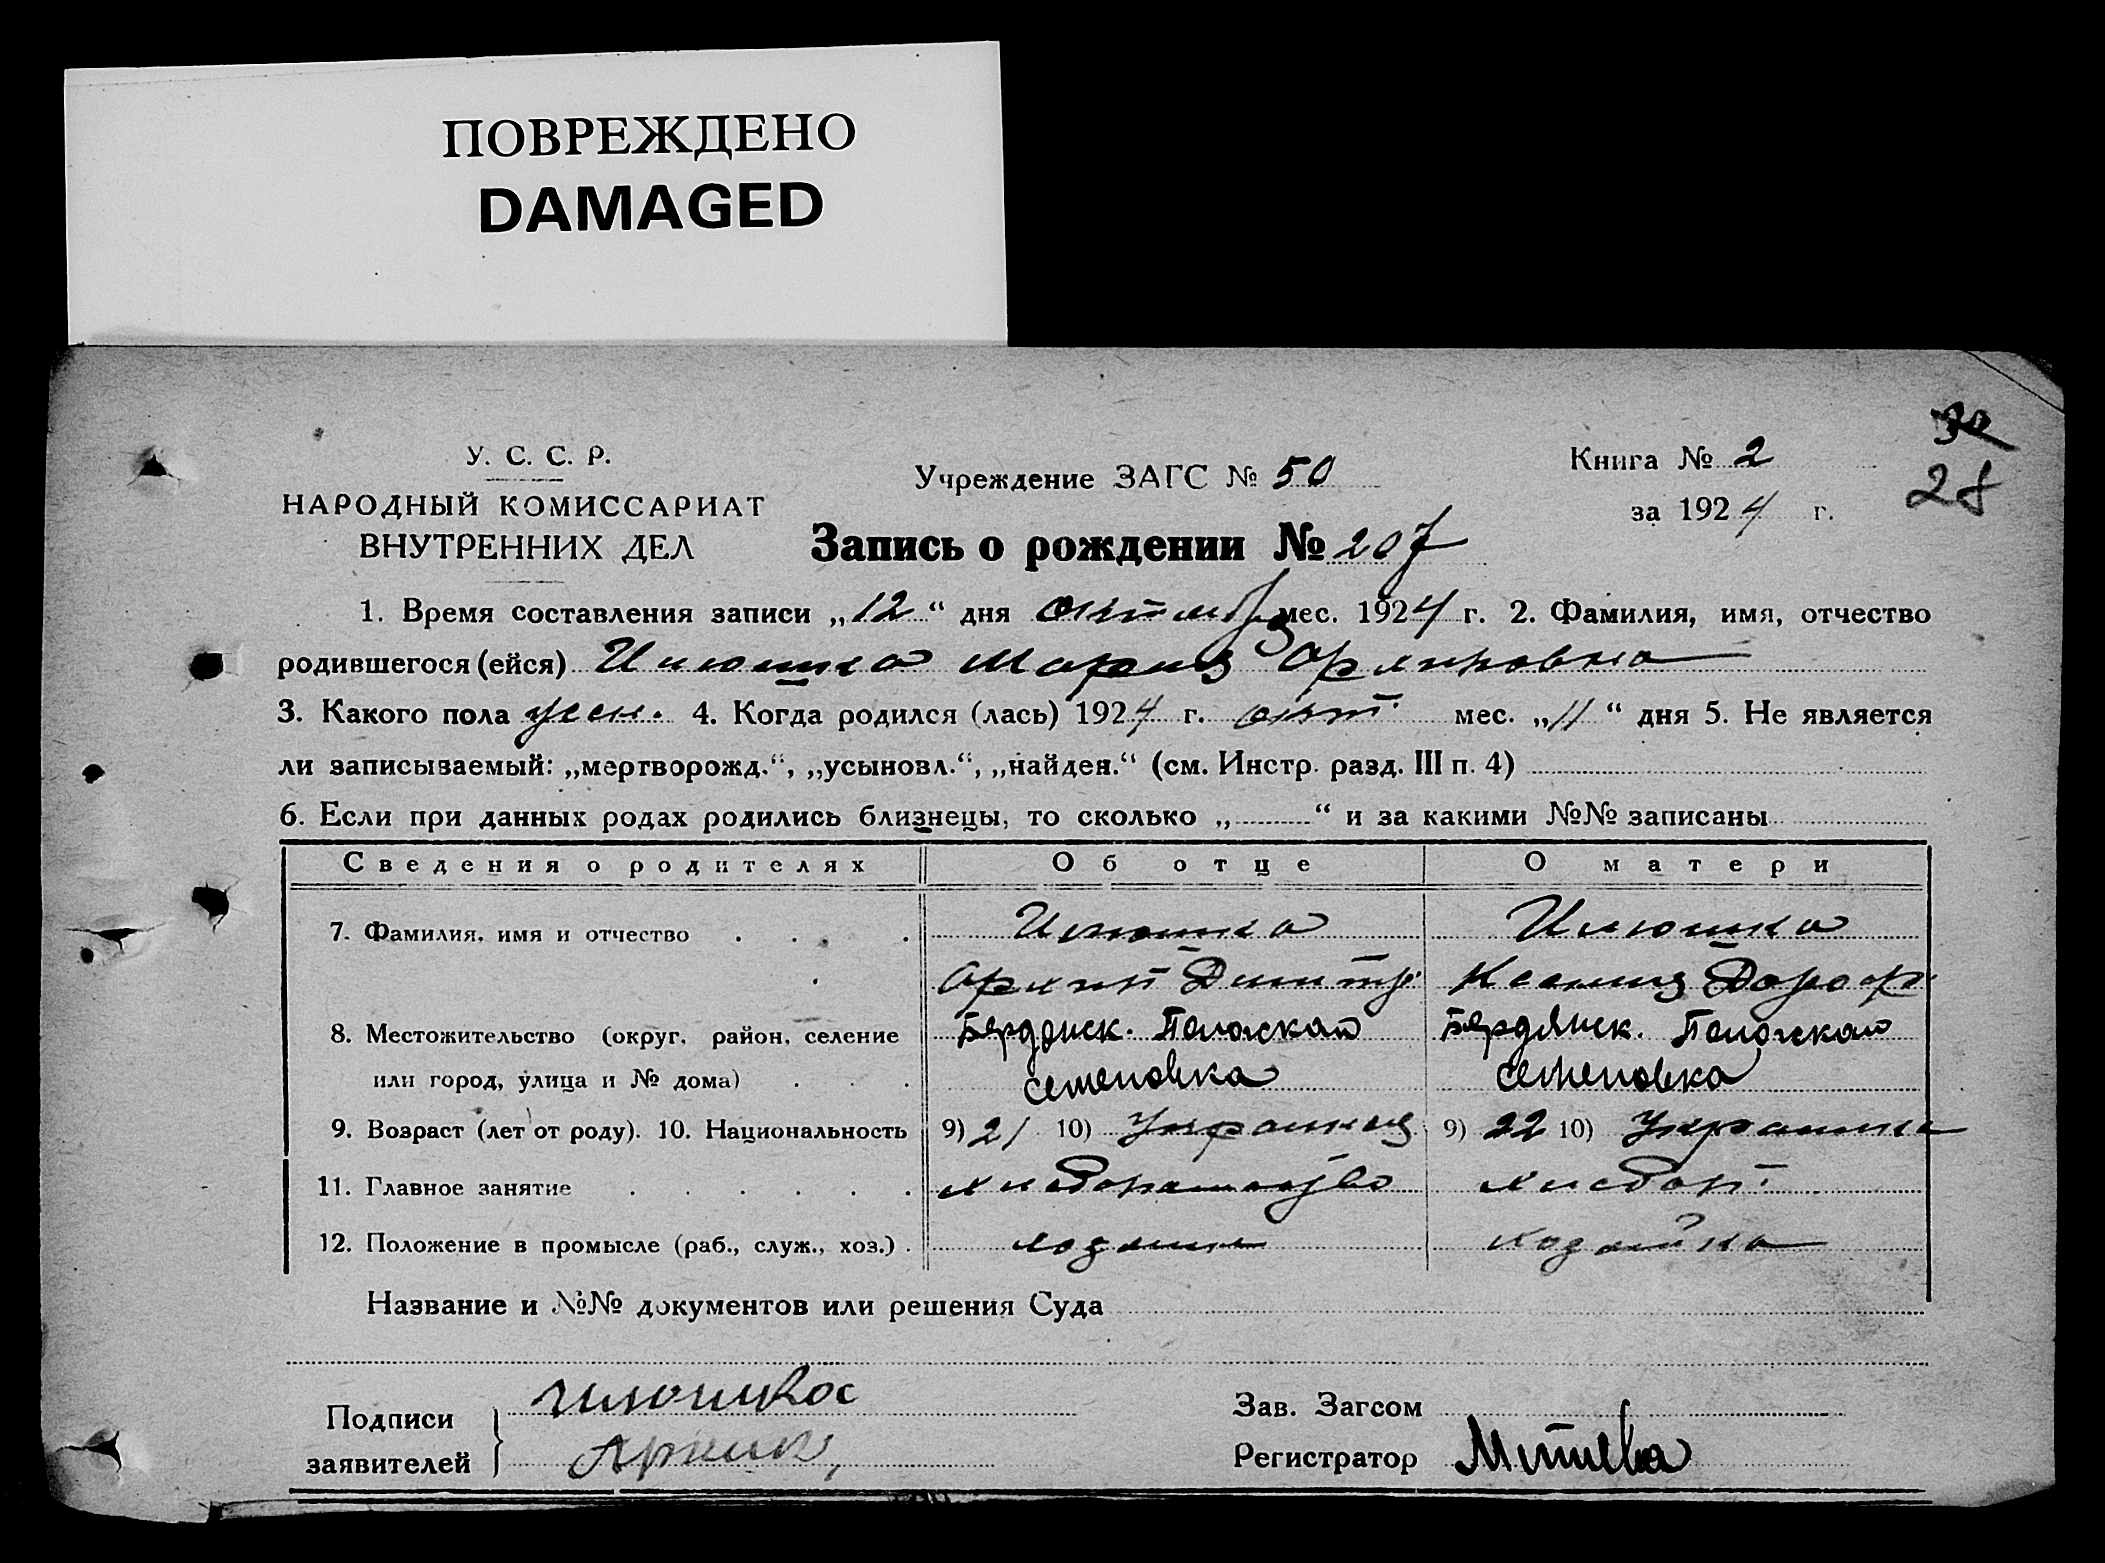 ПОВРЕЖДЕНО
DAMAGED
30
28
У. С. С. Р.
НАРОДНЫЙ КОМИССАРИАТ
ВНУТРЕННИХ ДЕЛ
Учреждение ЗАГС № 50
Книга № 2
за 1924 г.
Запись о рождении № 207
1. Время составления записи „12“ дня октября мес. 1924 г. 2. Фамилия, имя, отчество
родившегося (ейся) Илюшка Мария Архиповна
3. Какого пола жен. 4. Когда родился (лась) 1924 г. окт. мес. „11“ дня 5. Не является
ли записываемый: „мертворожд.“, „усыновл.“, „найден.“ (см. Инстр. разд. III п. 4)
6. Если при данных родах родились близнецы, то сколько „ “ и за какими №№ записаны
Сведения о родителях Об отце О матери
7. Фамилия, имя и отчество Илюшка Илюшка
Архип Дмитр. Ксения Дороф.
8. Местожительство (округ, район, селение Бердянск. Пологская Бердянск. Пологская
или город, улица и № дома) Семеновка Семеновка
9. Возраст (лет от роду). 10. Национальность 9) 21 10) Украинец 9) 22 10) Украинка
11. Главное занятие хлебопашество хлебоп.
12. Положение в промысле (раб., служ., хоз.) хозяин хозяйка
Название и №№ документов или решения Суда
Подписи
заявителей
Илюшка
Архип
Зав. Загсом
Регистратор